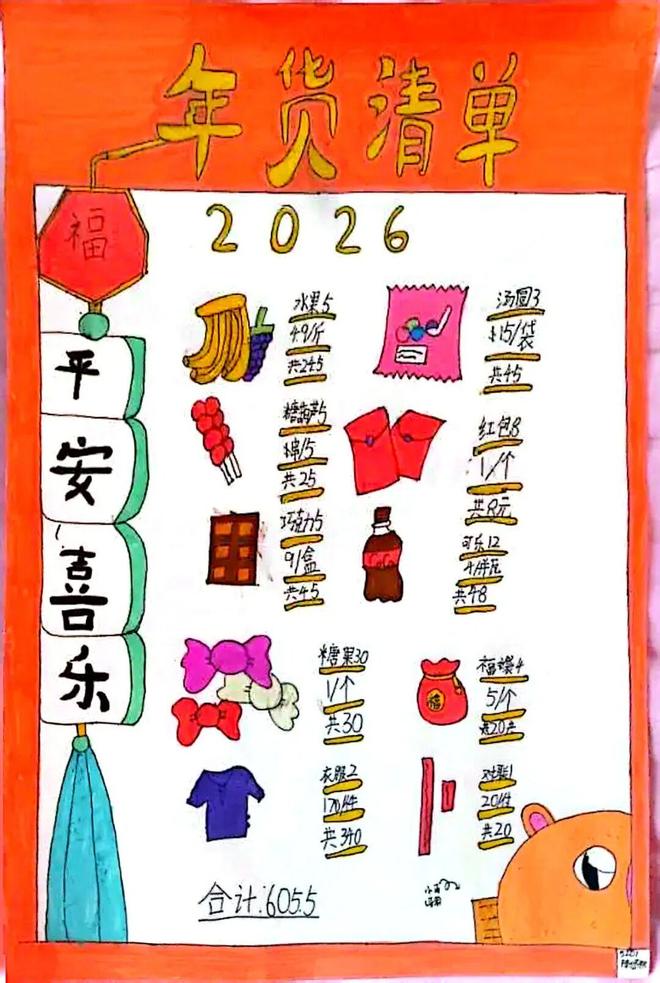 年货清单
福
2026
平
安
喜
乐
水果5
4.9/斤
共24.5
汤圆3
¥15/袋
共45
糖葫芦5
共25
红包8
1/个
共8元
巧克力5
9/盒
共45
可乐12
4/瓶
共48
糖果30
1/个
共30
福袋4
5/个
共20元
福
衣服2
170/件
共340
对联1
20/件
共20
合计:605.5